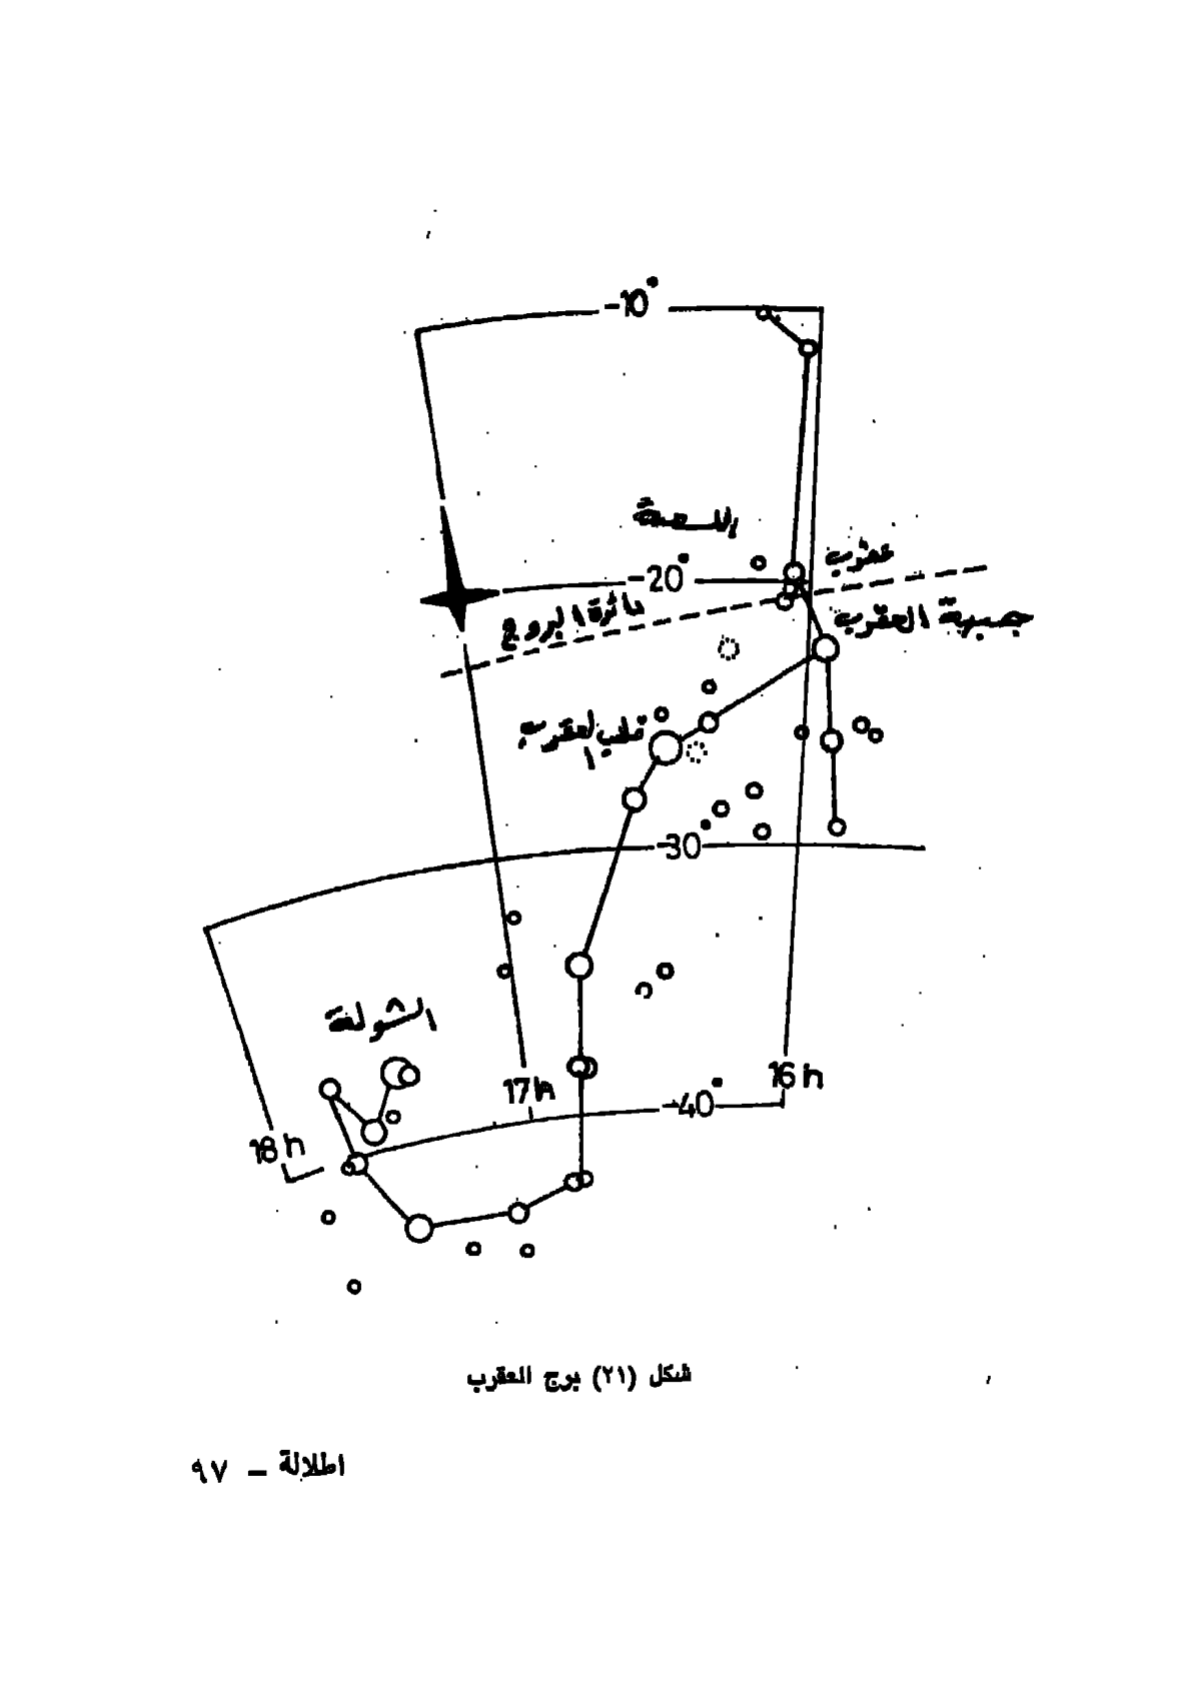 -10°
-20°
عقرب
دائرة البروج
جبهة العقرب
قلب العقرب
-30°
الشولة
17h
16h
-40°
18h
شكل (٢١) برج العقرب
اطلالة - ٩٧